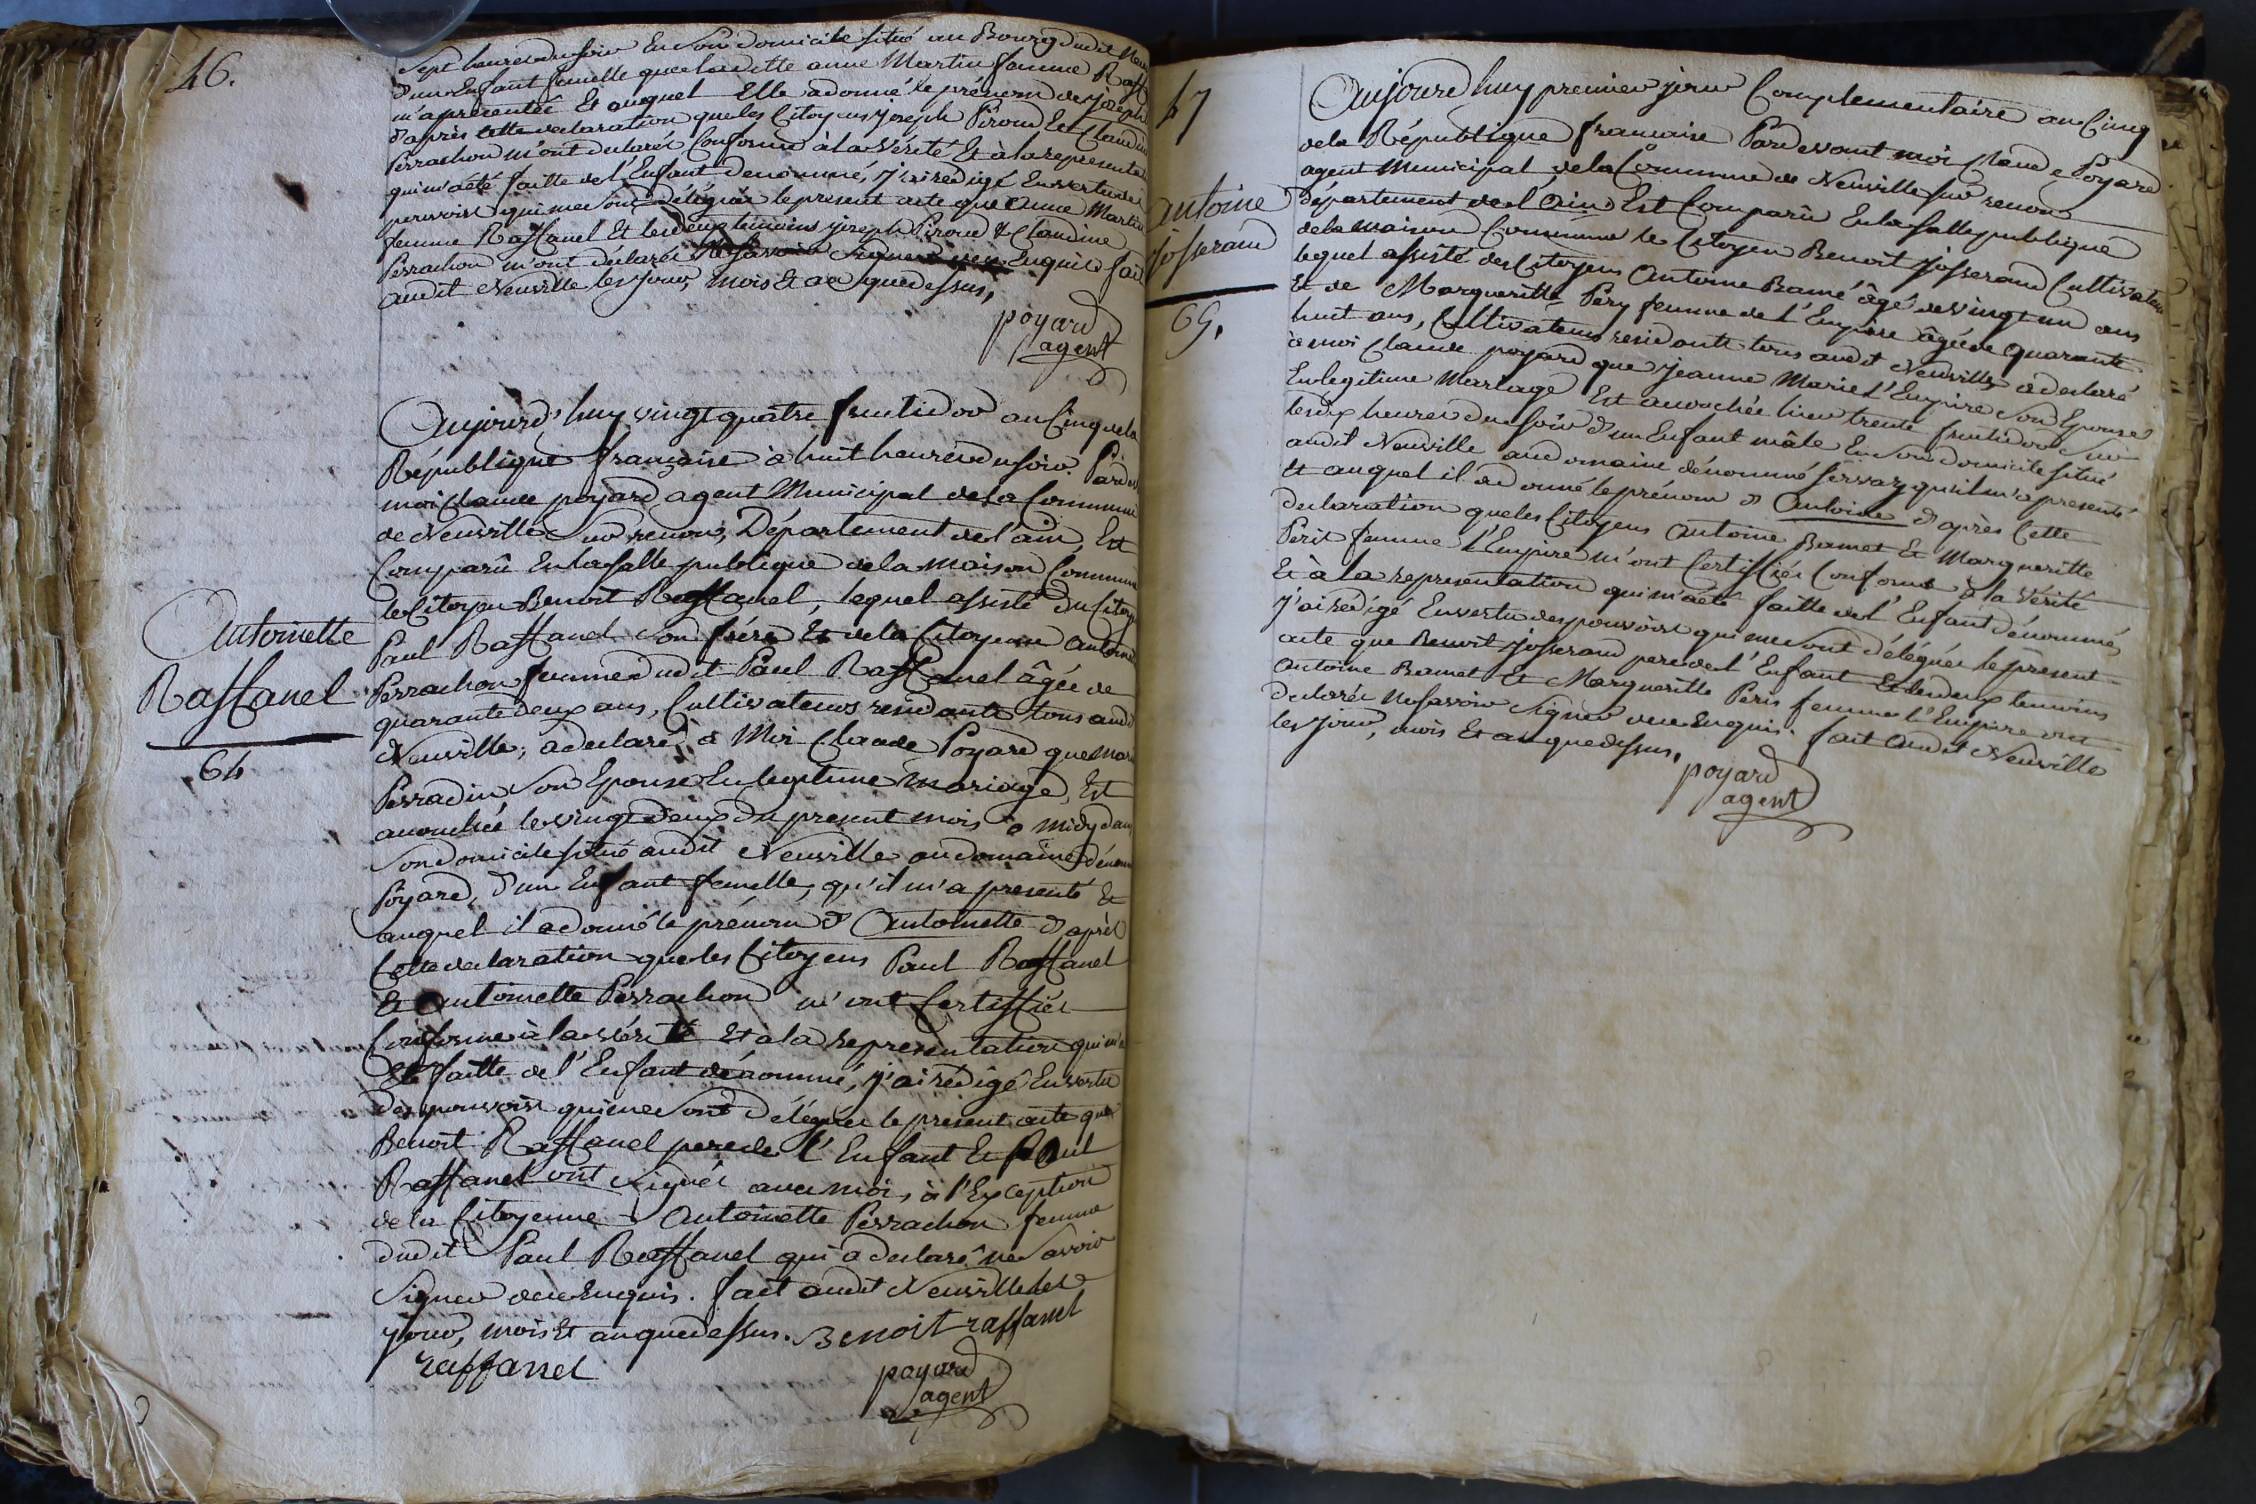 46.
Sept heures du soir En son domicile situé au Bourg dudit
d'un Enfant femelle que laditte anne Martin femme
m'a présentée Et auquel Elle a donné le prénom de joseph
d'après cette declaration que les Citoyens joseph Piroud Et Claudine
Perrachon m'ont declarés Conforme à la Vérité Et à la representation
qui m'a été faitte de l'Enfant dénommé, j'ai rédigé En vertu des
pouvoirs qui me sont délégués le présent acte que anne Martin
femme Raffanel Et les deux témoins joseph Piroud & Claudine
Perrachon m'ont déclarés Ne savoir signer Enquis fait
audit Neuville les jour, mois Et an que dessus,
poyard
agent
Aujourd'huy vingt quatre fructidor an Cinq de la
République française à huit heures du soir. Par de
moi Claude poyard agent Municipal de la Commune
de Neuville sur renom, Département de l'ain, Est
Comparû En la salle publique de la Maison Commune
le Citoyen Benoit Raffanel, lequel assisté du Citoyen
Paul Raffanel son frére Et de la Citoyenne Antoinette
Perrachon femme dudit Paul Raffanel âgée de
quarante deux ans, Cultivateurs residants tous audit
Neuville, a declaré à Moi Claude Poyard que
Perradin son Epouse En legitime Mariage, Est
accouchée le vingt deux du present mois à midy dans
son domicile situé audit Neuville au domaine
Poyard, d'un Enfant femelle, qu'il m'a presenté Et
auquel il a donné le prénom d'Antoinette d'après
Cette declaration que les Citoyens Paul Raffanel
Et Antoinette Perrachon m'ont Certiffiés
Conforme à la vérité Et à la representation qui m'a
Eté faitte de l'Enfant dénommé, j'ai rédigé En vertu
des pouvoirs qui me sont délégués le present acte que
Benoit Raffanel pere de l'Enfant Et Paul
Raffanel ont signés avec moi, à l'Exception
de la Citoyenne Antoinette Perrachon femme
dudit Paul Raffanel qui a declaré ne savoir
signer de ce Enquis. fait audit Neuville les
jour, mois Et an que dessus. Benoit raffanel
raffanel
poyard
agent
Antoinette
Raffanel
64
47
Antoine
josserand
65.
Aujourd'huy premier jour Complementaire an Cinq
de la République française Pardevant moi Claude Poyard
agent Municipal de la Commune de Neuville sur renom
département de l'Ain Est Comparû En la salle publique
de la maison Commune le Citoyen Benoit josserand Cultivateur
lequel assisté des Citoyens Antoine Bamé âgé de vingt un ans
Et de Margueritte Péry femme de l'Empire âgée de quarante
huit ans, Cultivateurs residants tous audit Neuville a declaré
à moi Claude poyard que jeanne Marie l'Empire son Epouse
En legitime Mariage Est accouchée hier trente fructidor sur
les dix heures du soir d'un Enfant mâle En son domicile situé
audit Neuville au domaine dénommé qu'il m'a presenté
Et auquel il a donné le prénom d'Antoine d'après Cette
declaration que les Citoyens Antoine Bamet Et Margueritte
Peris femme l'Empire m'ont Certiffiés Conforme à la Vérité
Et à la representation qui m'a été faitte de l'Enfant dénommé,
j'ai rédigé En vertu des pouvoirs qui me sont délégués le present
acte que Benoit josserand pere de l'Enfant Et les deux temoins
Antoine Bamet Et Margueritte Peris femme l'Empire ont
declarés ne savoir signer de ce Enquis. fait audit Neuville
les jour, mois Et an que dessus.
poyard
agent